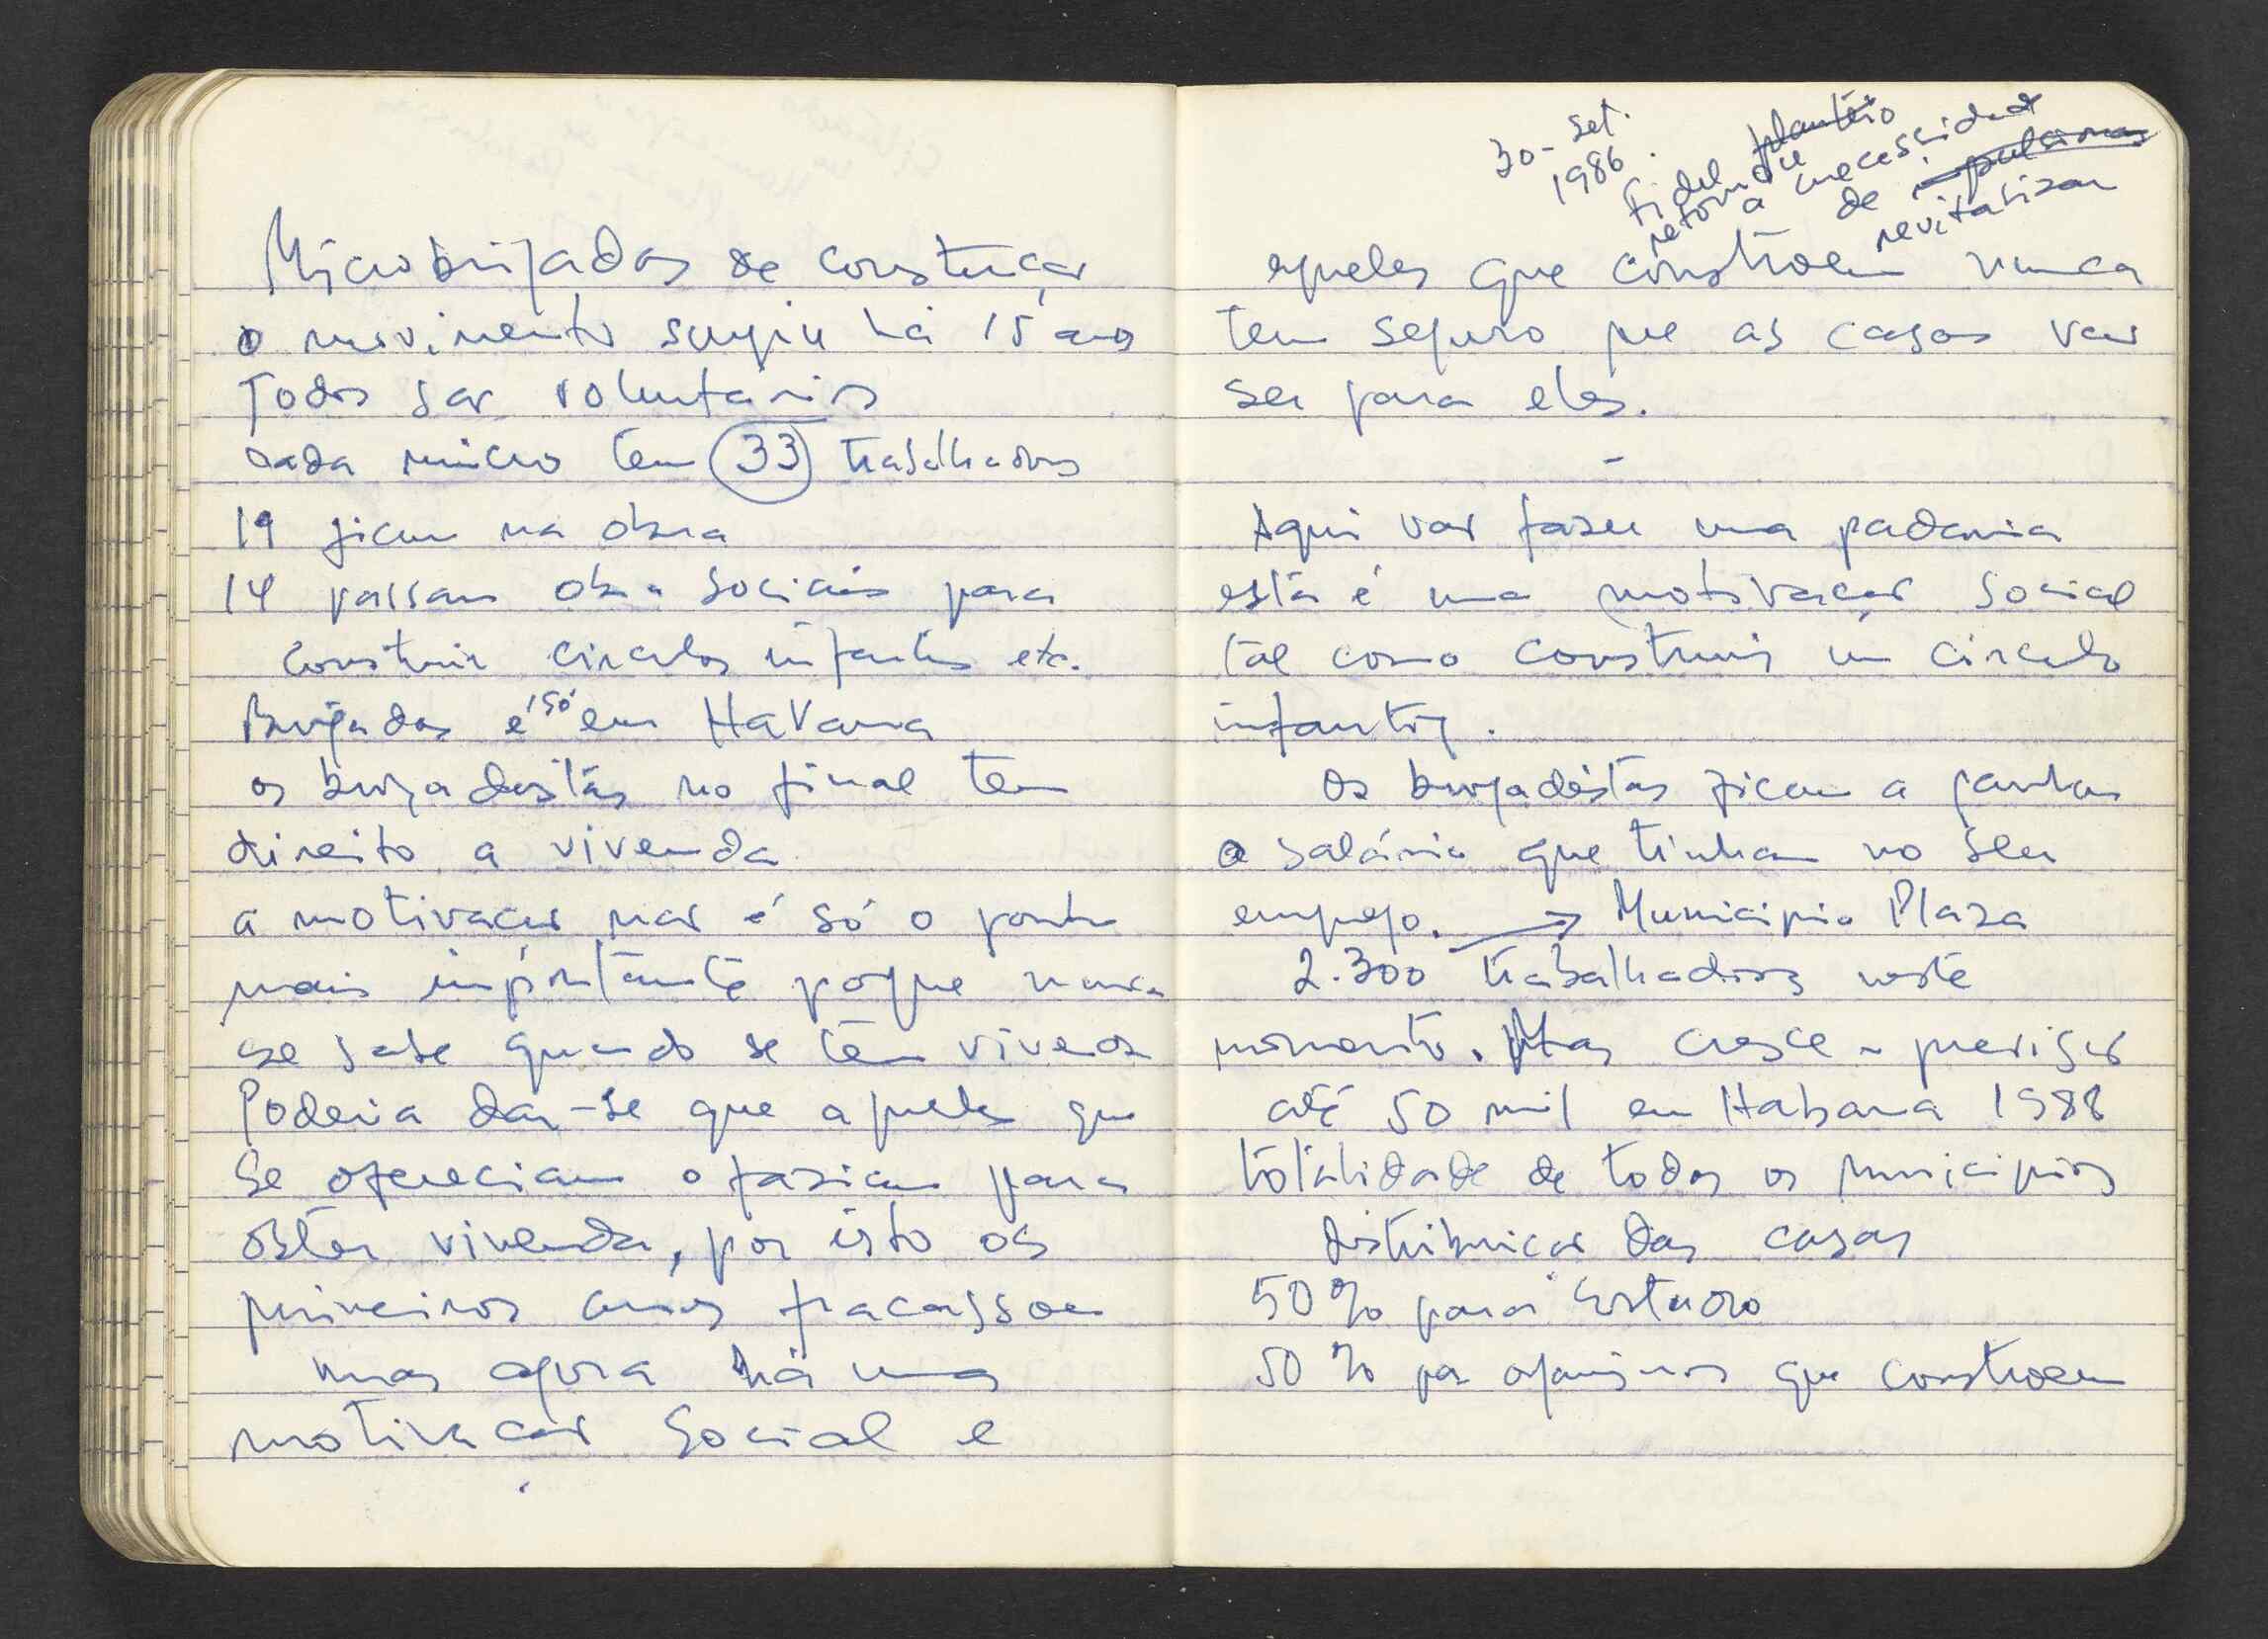 Microbrigadas de construção
o movimento surgiu há 15 anos
Todos são voluntarios
cada micro tem 33 trabalhadores
19 ficam na obra
14 passam obra sociais para
construir circulos infantis etc.
Brigadas é só em Havana
os brigadistas no final tem
direito a vivenda
a motivação não é só o ponto
mais importante porque nunca
se sabe quando se tem vivenda
Poderia dar-se que aqueles que
se ofereciam o faziam para
obter vivenda, por isto os
primeiros anos fracassou
mas agora há uma
motivação social e
30-set.
1986.
Fidel plantéio
retorna de
a necessidade
de pulsionar
revitalizar
aqueles que constroem nunca
tem seguro que as casas vão
ser para eles.
-
Aqui vão fazer uma padaria
esta é uma motivação social
tal como construir um circulo
infantil.
Os brigadistas ficam a ganhar
o salário que tinham no seu
emprego. → Municipio Plaza
2.300 trabalhadores neste
momento. Mas cresce a previsão
até 50 mil em Habana 1988
totalidade de todos os municipios
distribuição das casas
50% para Estado
50% para organismos que constroem